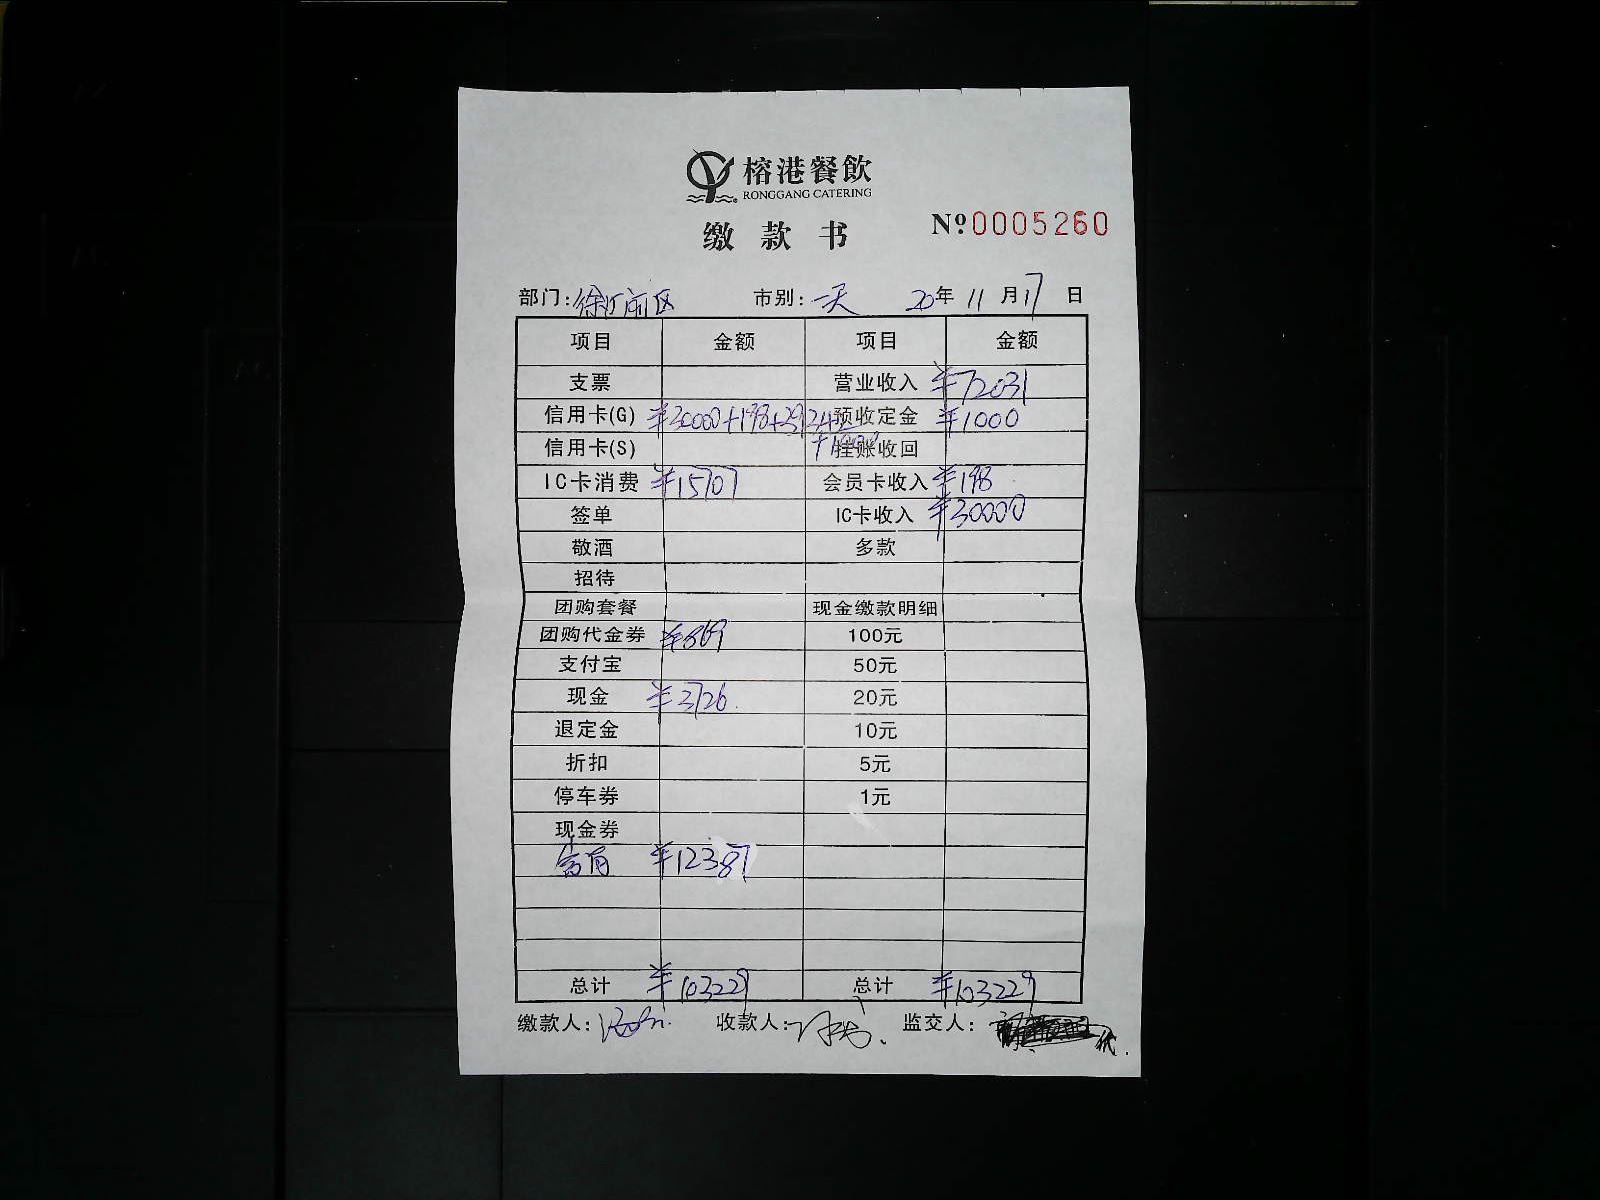 榕港餐飲
RONGGANG CATERING
缴款书
№0005260
部门:徐汇前区 市别:一天 20年11月17日
项目 金额 项目 金额
支票 营业收入 ¥72031
信用卡(G) ¥30000+198+ 预收定金 ¥1000
信用卡(S) 挂账收回
IC卡消费 ¥15707 会员卡收入 ¥198
签单 IC卡收入 ¥30000
敬酒 多款
招待
团购套餐 现金缴款明细
团购代金券 100元
支付宝 50元
现金 ¥3726 20元
退定金 10元
折扣 5元
停车券 1元
现金券
¥12387
总计 ¥103229 总计 ¥103229
缴款人: 收款人: 监交人: 代.